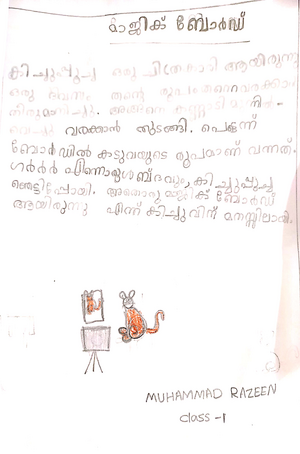 മാജിക് ബോർഡ്
കിച്ചുപ്പൂച്ച ഒരു ചിത്രകാരി ആയിരുന്നു
ഒരു ദിവസം തന്റെ രൂപം വരക്കാം
തീരുമാനിച്ചു. അങ്ങനെ കണ്ണാടി നോക്കി
വരക്കാൻ തുടങ്ങി. പെട്ടന്ന്
ബോർഡിൽ കടുവയുടെ രൂപമാണ് വന്നത്.
ഗർർർ എന്നൊരു ശബ്ദവും, കിച്ചുപ്പൂച്ച
ഞെട്ടിപ്പോയി. അതൊരു മാജിക് ബോർഡ്
ആയിരുന്നു എന്ന് കിച്ചുവിന് മനസ്സിലായി.
MUHAMMAD RAZEEN
class -1